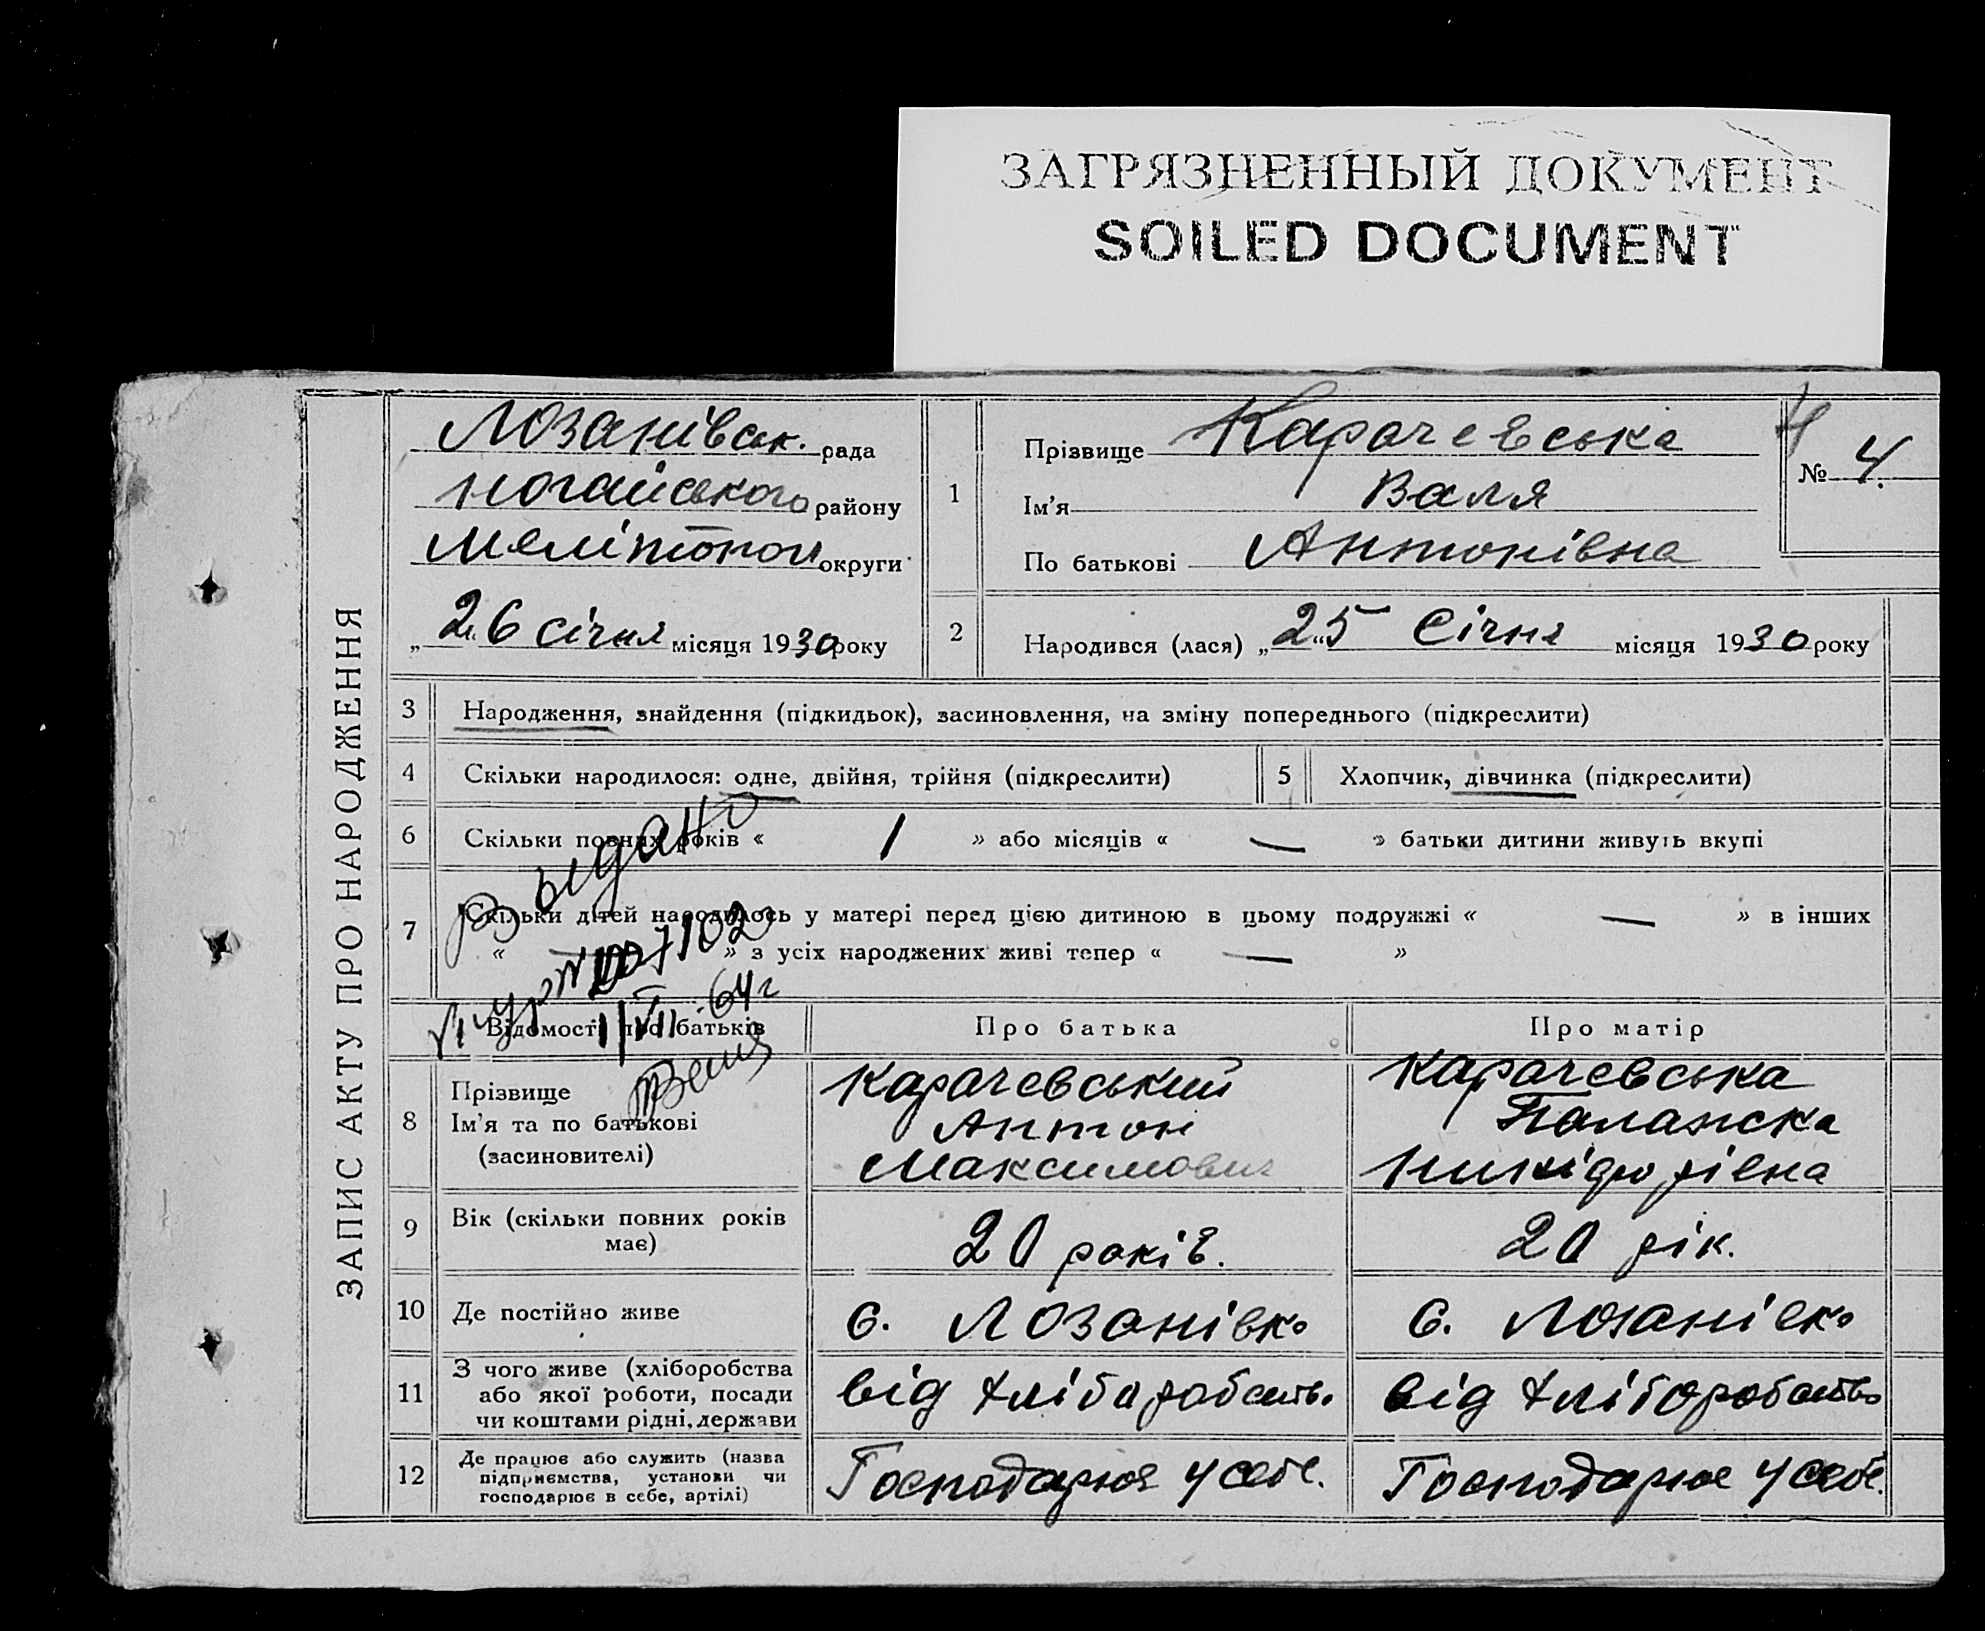 ЗАГРЯЗНЕННЫЙ ДОКУМЕНТ
SOILED DOCUMENT
ЗАПИС АКТУ ПРО НАРОДЖЕННЯ
Лозанівськ. рада
Ногайського району
Мелітопол округи
„26 січня місяця 1930 року
1
Прізвище Карачевська
Ім'я Валя
По батькові Антонівна
№ 4.
2 Народився (лася) „25 Січня місяця 1930 року
3 Народження, знайдення (підкидьок), засиновлення, на зміну попереднього (підкреслити)
4 Скільки народилося: одне, двійня, трійня (підкреслити)
5 Хлопчик, дівчинка (підкреслити)
6 Скільки повних років « 1 » або місяців « — » батьки дитини живуть вкупі
7 Скільки дітей народилось у матері перед цією дитиною в цьому подружжі « — » в інших
« » з усіх народжених живі тепер « — »
Выдано
64 г
Відомості про батьків
Про батька
Про матір
8 Прізвище
Ім'я та по батькові
(засиновителі)
Карачевський
Антон
Максимович
Карачевська
Палажска
Никифорівна
9 Вік (скільки повних років
має)
20 років.
20 рік.
10 Де постійно живе
с. Лозанівко
с. Лозанівко
11 З чого живе (хліборобства
або якої роботи, посади
чи коштами рідні, держави
від хліборобств.
від хліборобство
12 Де працює або служить (назва
підприємства, установи чи
господарює в себе, артілі)
Господарює у себе.
Господарює у себе.